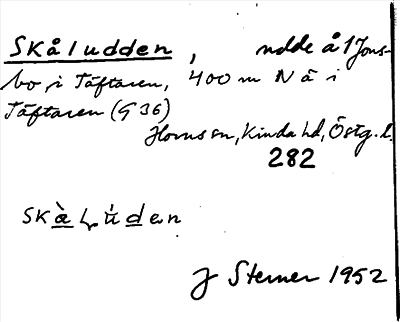 Skåludden, udde å 1 Jons-
bo, i Täftaren, 400 m N ä i
Täftaren (G 36)
Horns sn, Kinda hd, Östg. l.
282
skàlúden
J Sterner 1952